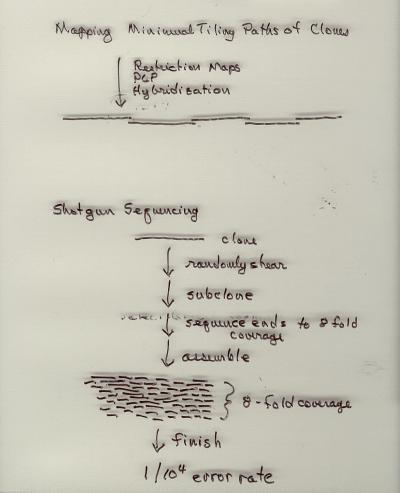 Mapping Minimal Tiling Paths of Clones
Restriction Maps
PCP
Hybridization
Shotgun Sequencing
clone
randomly shear
subclone
sequence ends to 8 fold
coverage
assemble
8-fold coverage
finish
1/10⁴ error rate